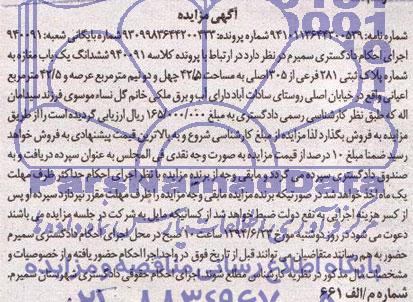 آگهی مزایده
شماره نامه: ۹۴۱۰۱۱۳۶۴۴۳۰۰۵۳۹ شماره پرونده: ۹۳۰۹۹۸۳۶۴۴۲۰۰۴۳۳ شماره بایگانی شعبه: ۹۴۰۰۹۱
اجرای احکام دادگستری سمیرم در نظر دارد در ارتباط با پرونده کلاسه ۹۴۰۰۹۱ ششدانگ یک باب مغازه به
شماره پلاک ثبتی ۲۸۱ فرعی از ۱۳۰۵ اصلی به مساحت ۴۲/۵ چهل و دو نیم مترمربع عرصه و ۴۲/۵ مترمربع
اعیانی واقع در خیابان اصلی روستای سادات آباد دارای آب و برق ملکی خانم گل نساء موسوی فرزند سیدامان
اله که طبق نظر کارشناسی رسمی دادگستری به مبلغ ۱۶۵/۰۰۰/۰۰۰ ریال ارزیابی گردیده است را از طریق
مزایده به فروش بگذارد لذا مزایده از مبلغ کارشناسی شروع و به بالاترین قیمت پیشنهادی به فروش خواهد
رسید ضمنا مبلغ ۱۰ درصد از قیمت مزایده به صورت وجه نقدی فی المجلس به عنوان سپرده دریافت و به
صندوق دادگستری سپرده می گردد و مابقی وجه از برنده مزایده با نظر اجرای احکام حداکثر ظرف مهلت
یک ماه اخذ خواهد شد در صورتیکه برنده مزایده مابقی وجه مزایده را ظرف مهلت مقرر نپردازد سپرده او پس
از کسر هزینه اجرائی به نفع دولت ضبط خواهد شد از کسانیکه مایل به شرکت در جلسه مزایده می باشند
دعوت می شود در روز دوشنبه مورخ ساعت ۱۰ صبح در محل اجرای احکام دادگستری سمیرم
حضور به هم رسانند متقاضیان می توانند قبل از تاریخ فوق در واحد اجرا احکام حضور یافته و از خصوصیات و
مشخصات مال مذکور در نظریه کارشناس مطلع شوند. اجرای احکام حقوقی دادگستری شهرستان سمیرم.
شماره م/الف ۶۶۱
ParsNamadData